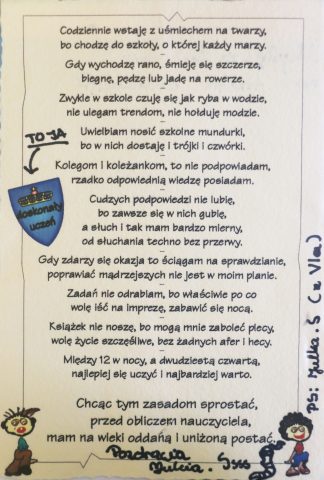 Codziennie wstaję z uśmiechem na twarzy,
bo chodzę do szkoły, o której każdy marzy.
Gdy wychodzę rano, śmieję się szczerze,
biegnę, pędzę lub jadę na rowerze.
Zwykle w szkole czuję się jak ryba w wodzie,
nie ulegam trendom, nie hołduję modzie.
TO JA
Uwielbiam nosić szkolne mundurki,
bo w nich dostaję i trójki i czwórki.
Kolegom i koleżankom, to nie podpowiadam,
rzadko odpowiednią wiedzę posiadam.
doskonały
uczeń
Cudzych podpowiedzi nie lubię,
bo zawsze się w nich gubię,
a słuch i tak mam bardzo mierny,
od słuchania techno bez przerwy.
Gdy zdarzy się okazja to ściągam na sprawdzianie,
poprawiać mądrzejszych nie jest w moim planie.
Zadań nie odrabiam, bo właściwie po co
wolę iść na imprezę, zabawić się nocą.
Książek nie noszę, bo mogą mnie zaboleć plecy,
wolę życie szczęśliwe, bez żadnych afer i hecy.
Między 12 w nocy, a dwudziestą czwartą,
najlepiej się uczyć i najbardziej warto.
Chcąc tym zasadom sprostać,
przed obliczem nauczyciela,
mam na wieki oddaną i uniżoną postać.
Julcia.
PS: Julka. S (z VIa)